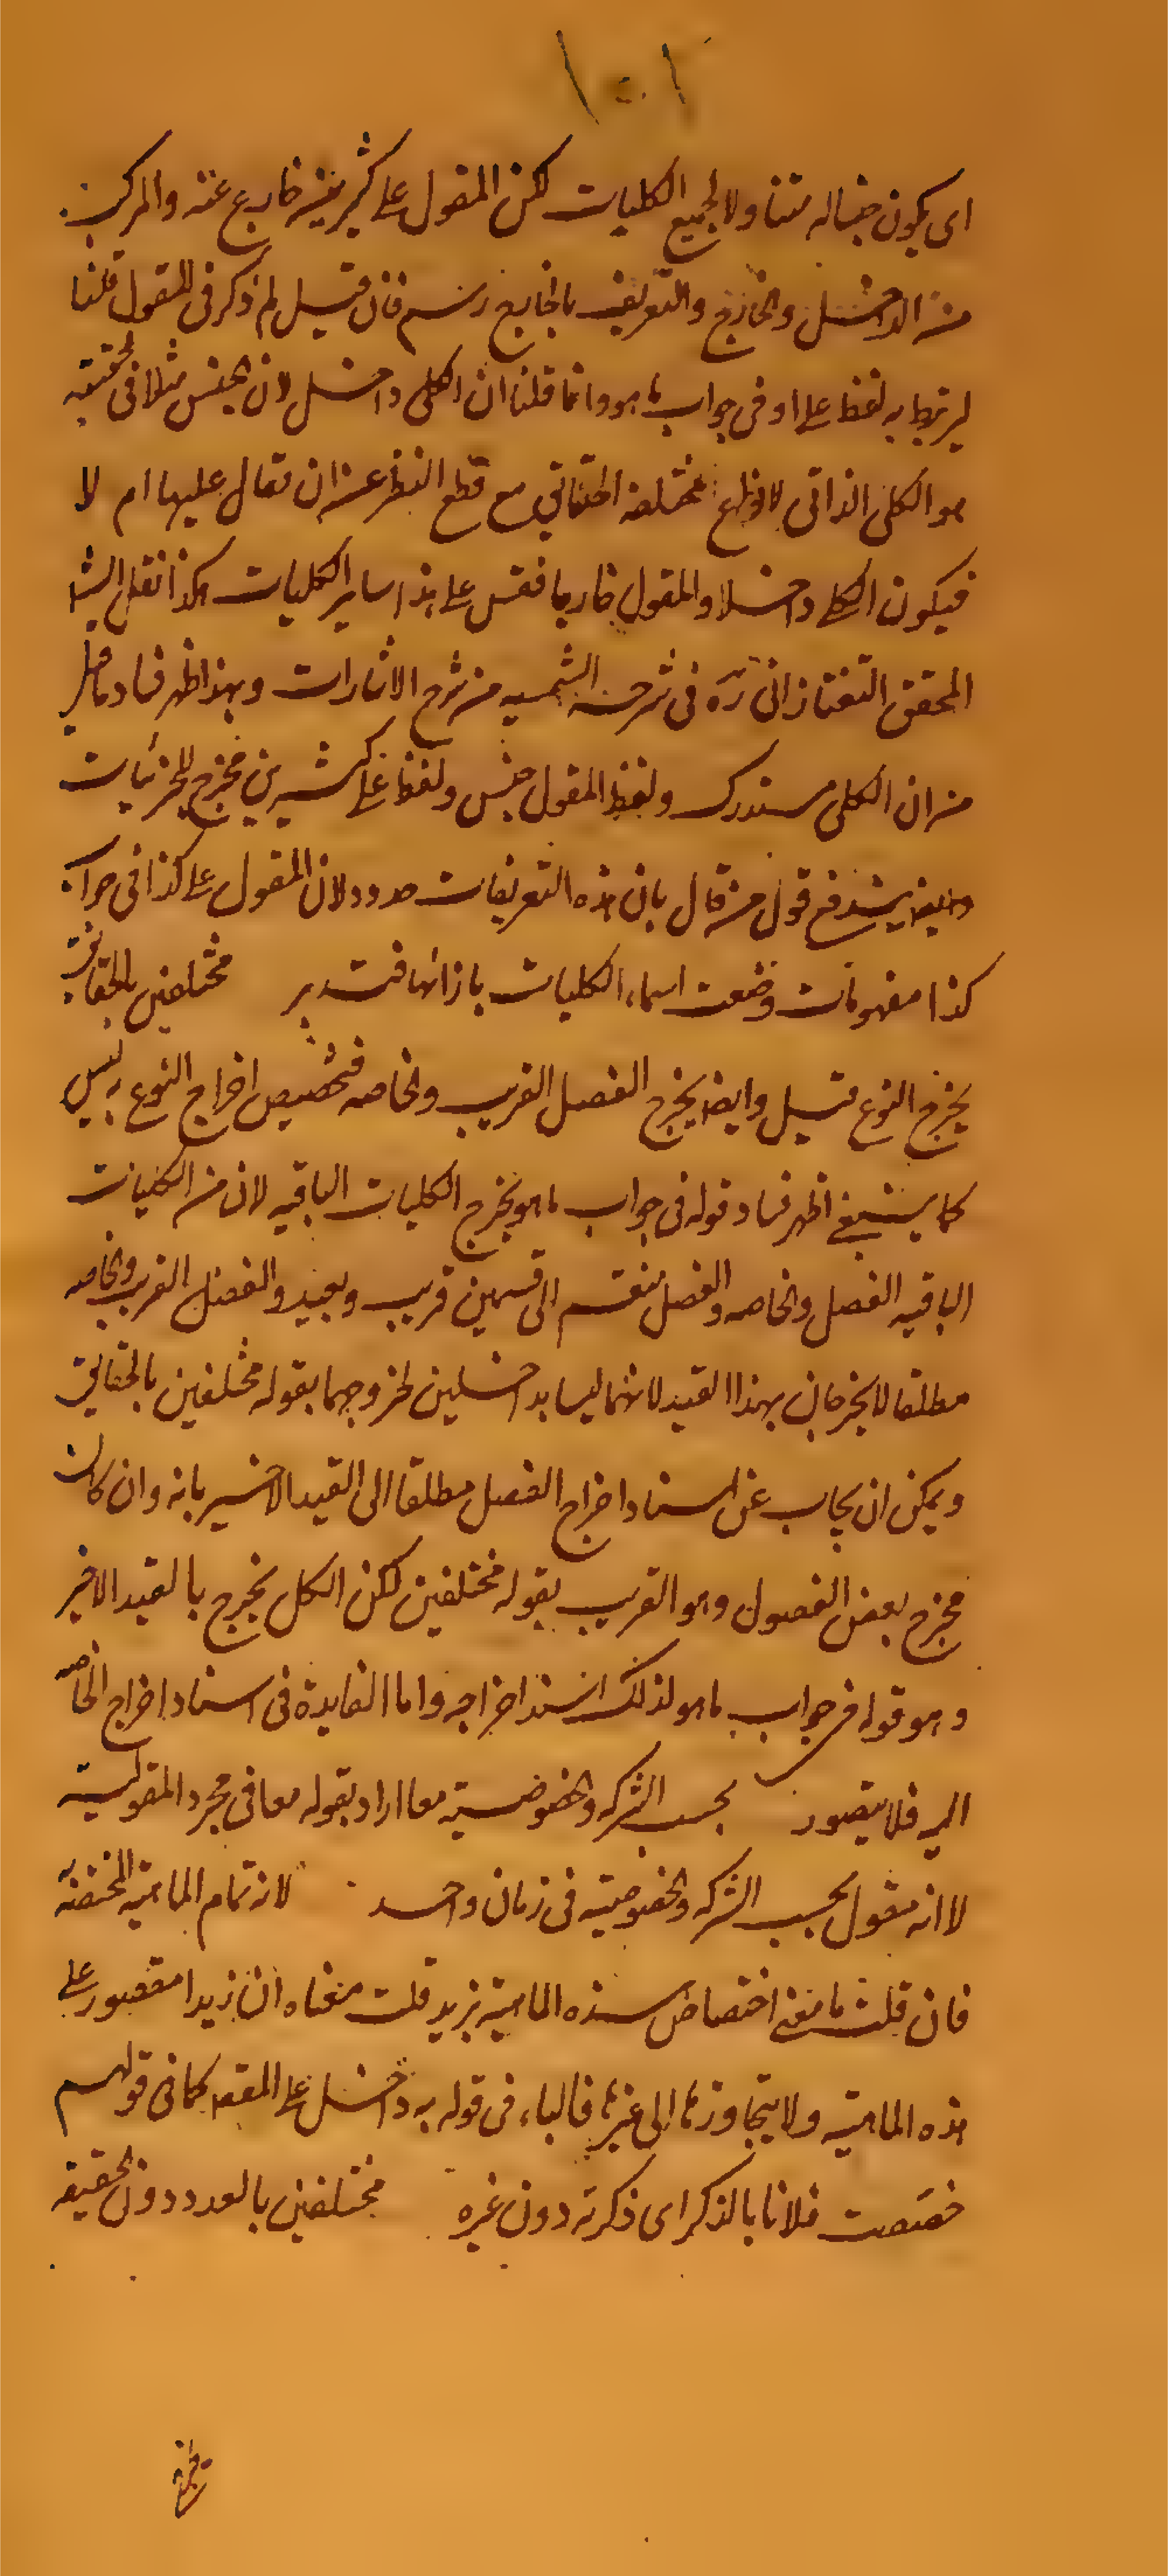 ١٠١
اى يكون جنسا له متناولا لجميع الكليات لكن المقول على كثيرين خارج عنه والمركب
من الداخل والخارج والتعريف بالخارج رسم فان قيل لم ذكر فى المقول قلنا
ليرتبط به لفظ على او فى جواب ما هو وانما قلنا ان الكلى داخل لان الجنس مثلا فى الحقيقة
هو الكلى الذاتى لانواع مختلفة الحقائق مع قطع النظر عن ان تقال عليها ام لا
فيكون الكلى داخلا والمقول خارجا فقس على هذا ساير الكليات هكذا نقل الش
المحقق التفتازانى ره فى شرحه الشمسيه من شرح الاشارات وبهذا ظهر فساد ما قيل
من ان الكلى مستدرك ولفظ المقول جنس ولفظ على كثيرين مخرج للجزئيات
وايضا يندفع قول من قال بان هذه التعريفات حدود لان المقول على كذا فى جواب
كذا مفهومات وضعت اسماء الكليات بازائها فتدبر مختلفين بالحقايق
يخرج النوع قيل وايضا يخرج الفصل القريب والخاصه فتخصيص اخراج النوع به ليس
كما ينبغى اظهر فساد قوله فى جواب ما هو يخرج الكليات الباقيه لان من الكليات
الباقيه الفصل والخاصه والفصل منقسم الى قسمين قريب وبعيد والفصل القريب والخاصه
مطلقا لا يخرجان بهذا القيد لانهما ليسا بداخلين لخروجهما بقوله مختلفين بالحقايق
ويمكن ان يجاب عن اسناد اخراج الفصل مطلقا الى القيد الاخير بانه وان كان
مخرج بعض الفصول وهو القريب بقوله مختلفين لكن الكل يخرج بالقيد الاخير
وهو قوله فى جواب ما هو لذلك اسند اخراجه واما الفايدة فى اسناد اخراج الخاصه
اليه فلا يتصور بحسب الشركه والخصوصية معا اراد بقوله معا فى مجرد المقولية
لا انه مقول بحسب الشركه والخصوصيته فى زمان واحد لانه تمام الماهية المختصة به
فان قلت ما معنى اختصاص هذه الماهية بزيد قلت معناه ان زيدا مقصور على
هذه الماهيته ولا يتجاوزها الى غيرها فالباء فى قوله به داخل على المقصور كما فى قولهم
خصصت فلانا بالذكر اى ذكرته دون غيره مختلفين بالعدد دون الحقيقه